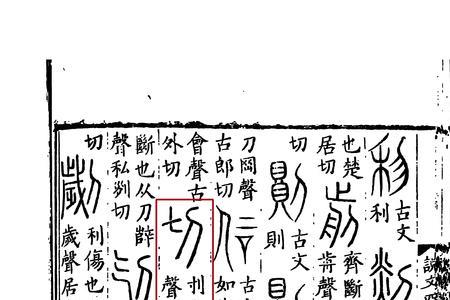 利
古文
利
剡
也楚
居切
前
齊斷
歬聲
切
則
古文
則
刀岡聲
古郎切
古
如
會聲古
外切
切
刌
聲
斷也从刀辥
聲私列切
切
劌
利傷也
歲聲居
說文四